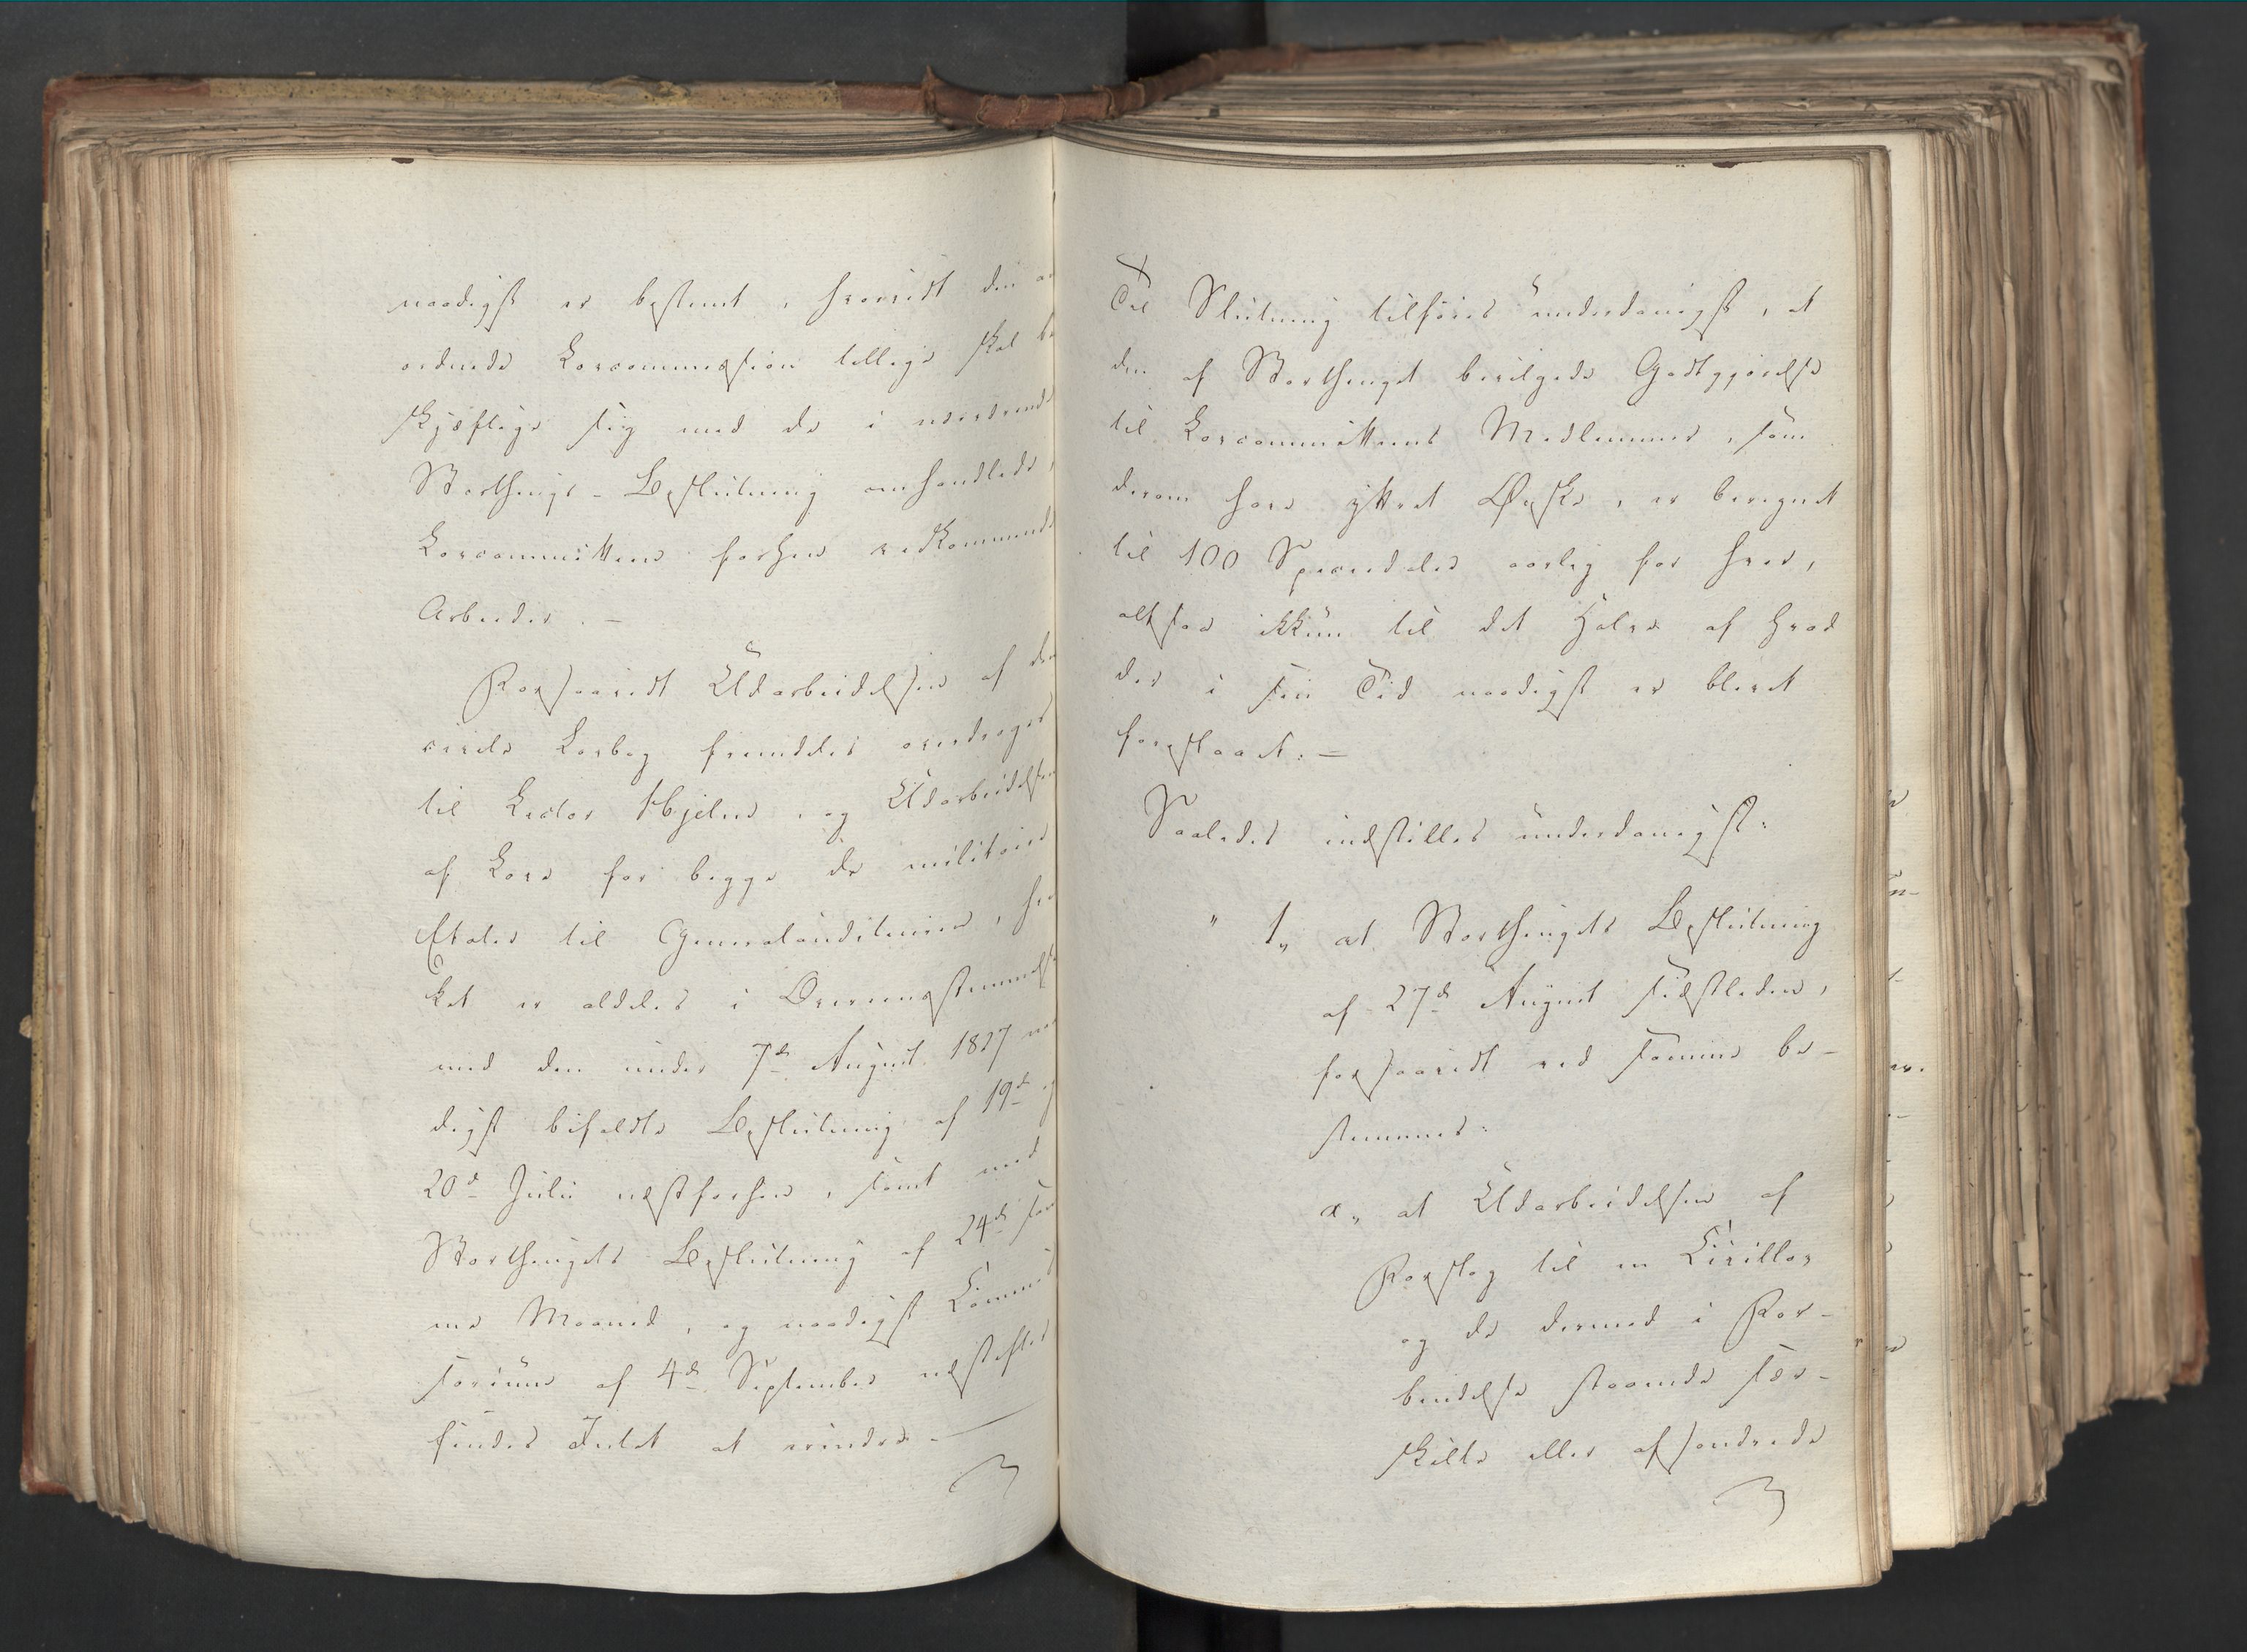 naadigst er bestemt, hvorvidt den
ordnede Lovcommission tillige skal be
skjæftige sig med de i nærværende
Storthings-Beslutning omhandlede,
Lovcommitteen forhen vedkommende
Arbeider. –
Forsaavidt Udarbeidelsen af den
civile Lovbog fremdeles overdrages
til Lector Hjelm, og Udarbeidelsen
af Love for begge de militaire
Etater til Generalauditeuren, hvil
ket er aldeles i Overeensstemmelse
med den under 7de August 1827 naa
digst bifaldte Beslutning af 19de og
20de Julii næstforhen, samt med
Storthingets Beslutning af 24de sam
me Maaned, og naadigst Commis
sorium af 4de September næstefter
findes Intet at erindre. –
Til Slutning tilføies underdanigst, at
den af Storthinget bevilgede Godtgjørelse
til Lovcommitteens Medlemmer, som
derom have yttret Ønske, er beregnet
til 100 Speciedaler aarlig for hver,
altsaa ikkun til det Halve af hvad
der i sin Tid naadigst er blevet
foreslaaet. –
Saaledes indstilles underdanigst:
" 1, at Storthingets Beslutning
af 27de August sidstleden,
forsaavidt ved samme be-
stemmes:
a, at Udarbeidelsen af
Forslag til en Civillov
og de dermed i For-
bindelse staaende sær-
skilte eller afsondrede